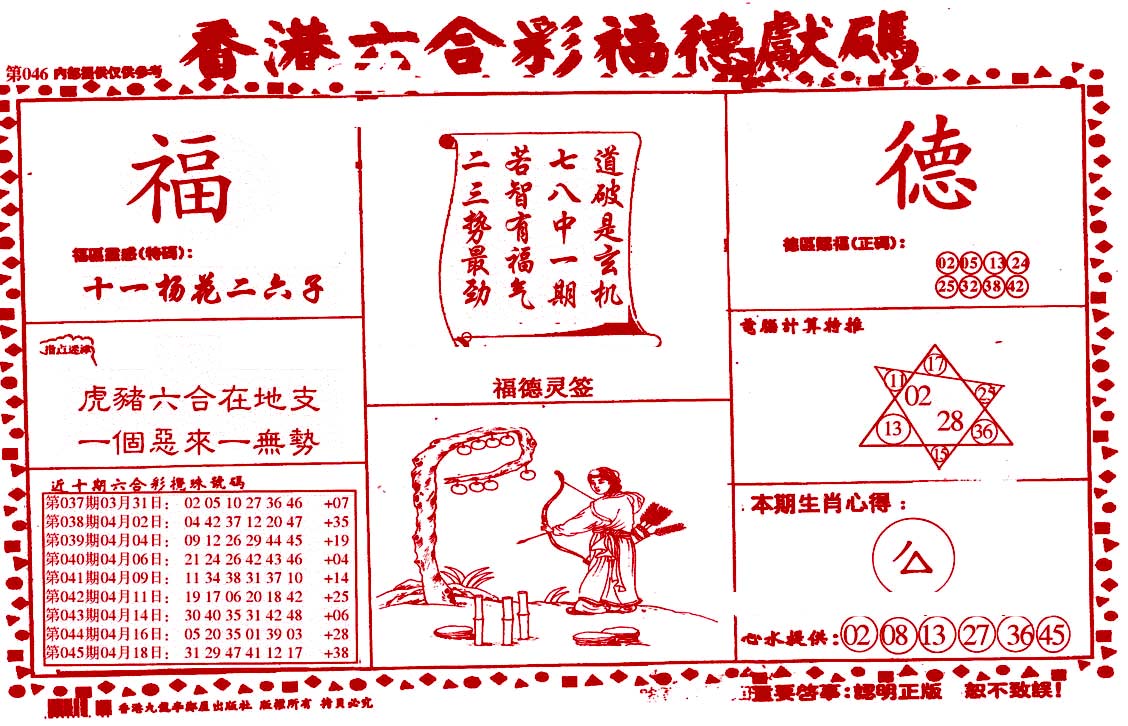 香港六合彩福德獻碼
第046 內部提供仅供参考
福
福區靈感(特碼):
十一杨花二六子
指点迷津
虎豬六合在地支
一個惡來一無勢
近十期六合彩攪珠號碼
第037期03月31日: 02 05 10 27 36 46 +07
第038期04月02日: 04 42 37 12 20 47 +35
第039期04月04日: 09 12 26 29 44 45 +19
第040期04月06日: 21 24 26 42 43 46 +04
第041期04月09日: 11 34 38 31 37 10 +14
第042期04月11日: 19 17 06 20 18 42 +25
第043期04月14日: 30 40 35 31 42 48 +06
第044期04月16日: 05 20 35 01 39 03 +28
第045期04月18日: 31 29 47 41 12 17 +38
道破是玄机
七八中一期
若智有福气
二三势最劲
福德灵签
德
德區賜福(正碼):
02 05 13 24
25 32 38 42
電腦計算特推
17
11 02 25
28
13 36
15
本期生肖心得:
心水提供: 02 08 13 27 36 45
重要啓事:認明正版 恕不致誤!
出版社 版權所有 拷貝必究